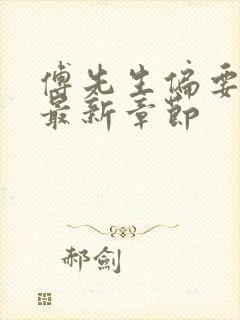 傅先生偏要
最新章節
郝劍